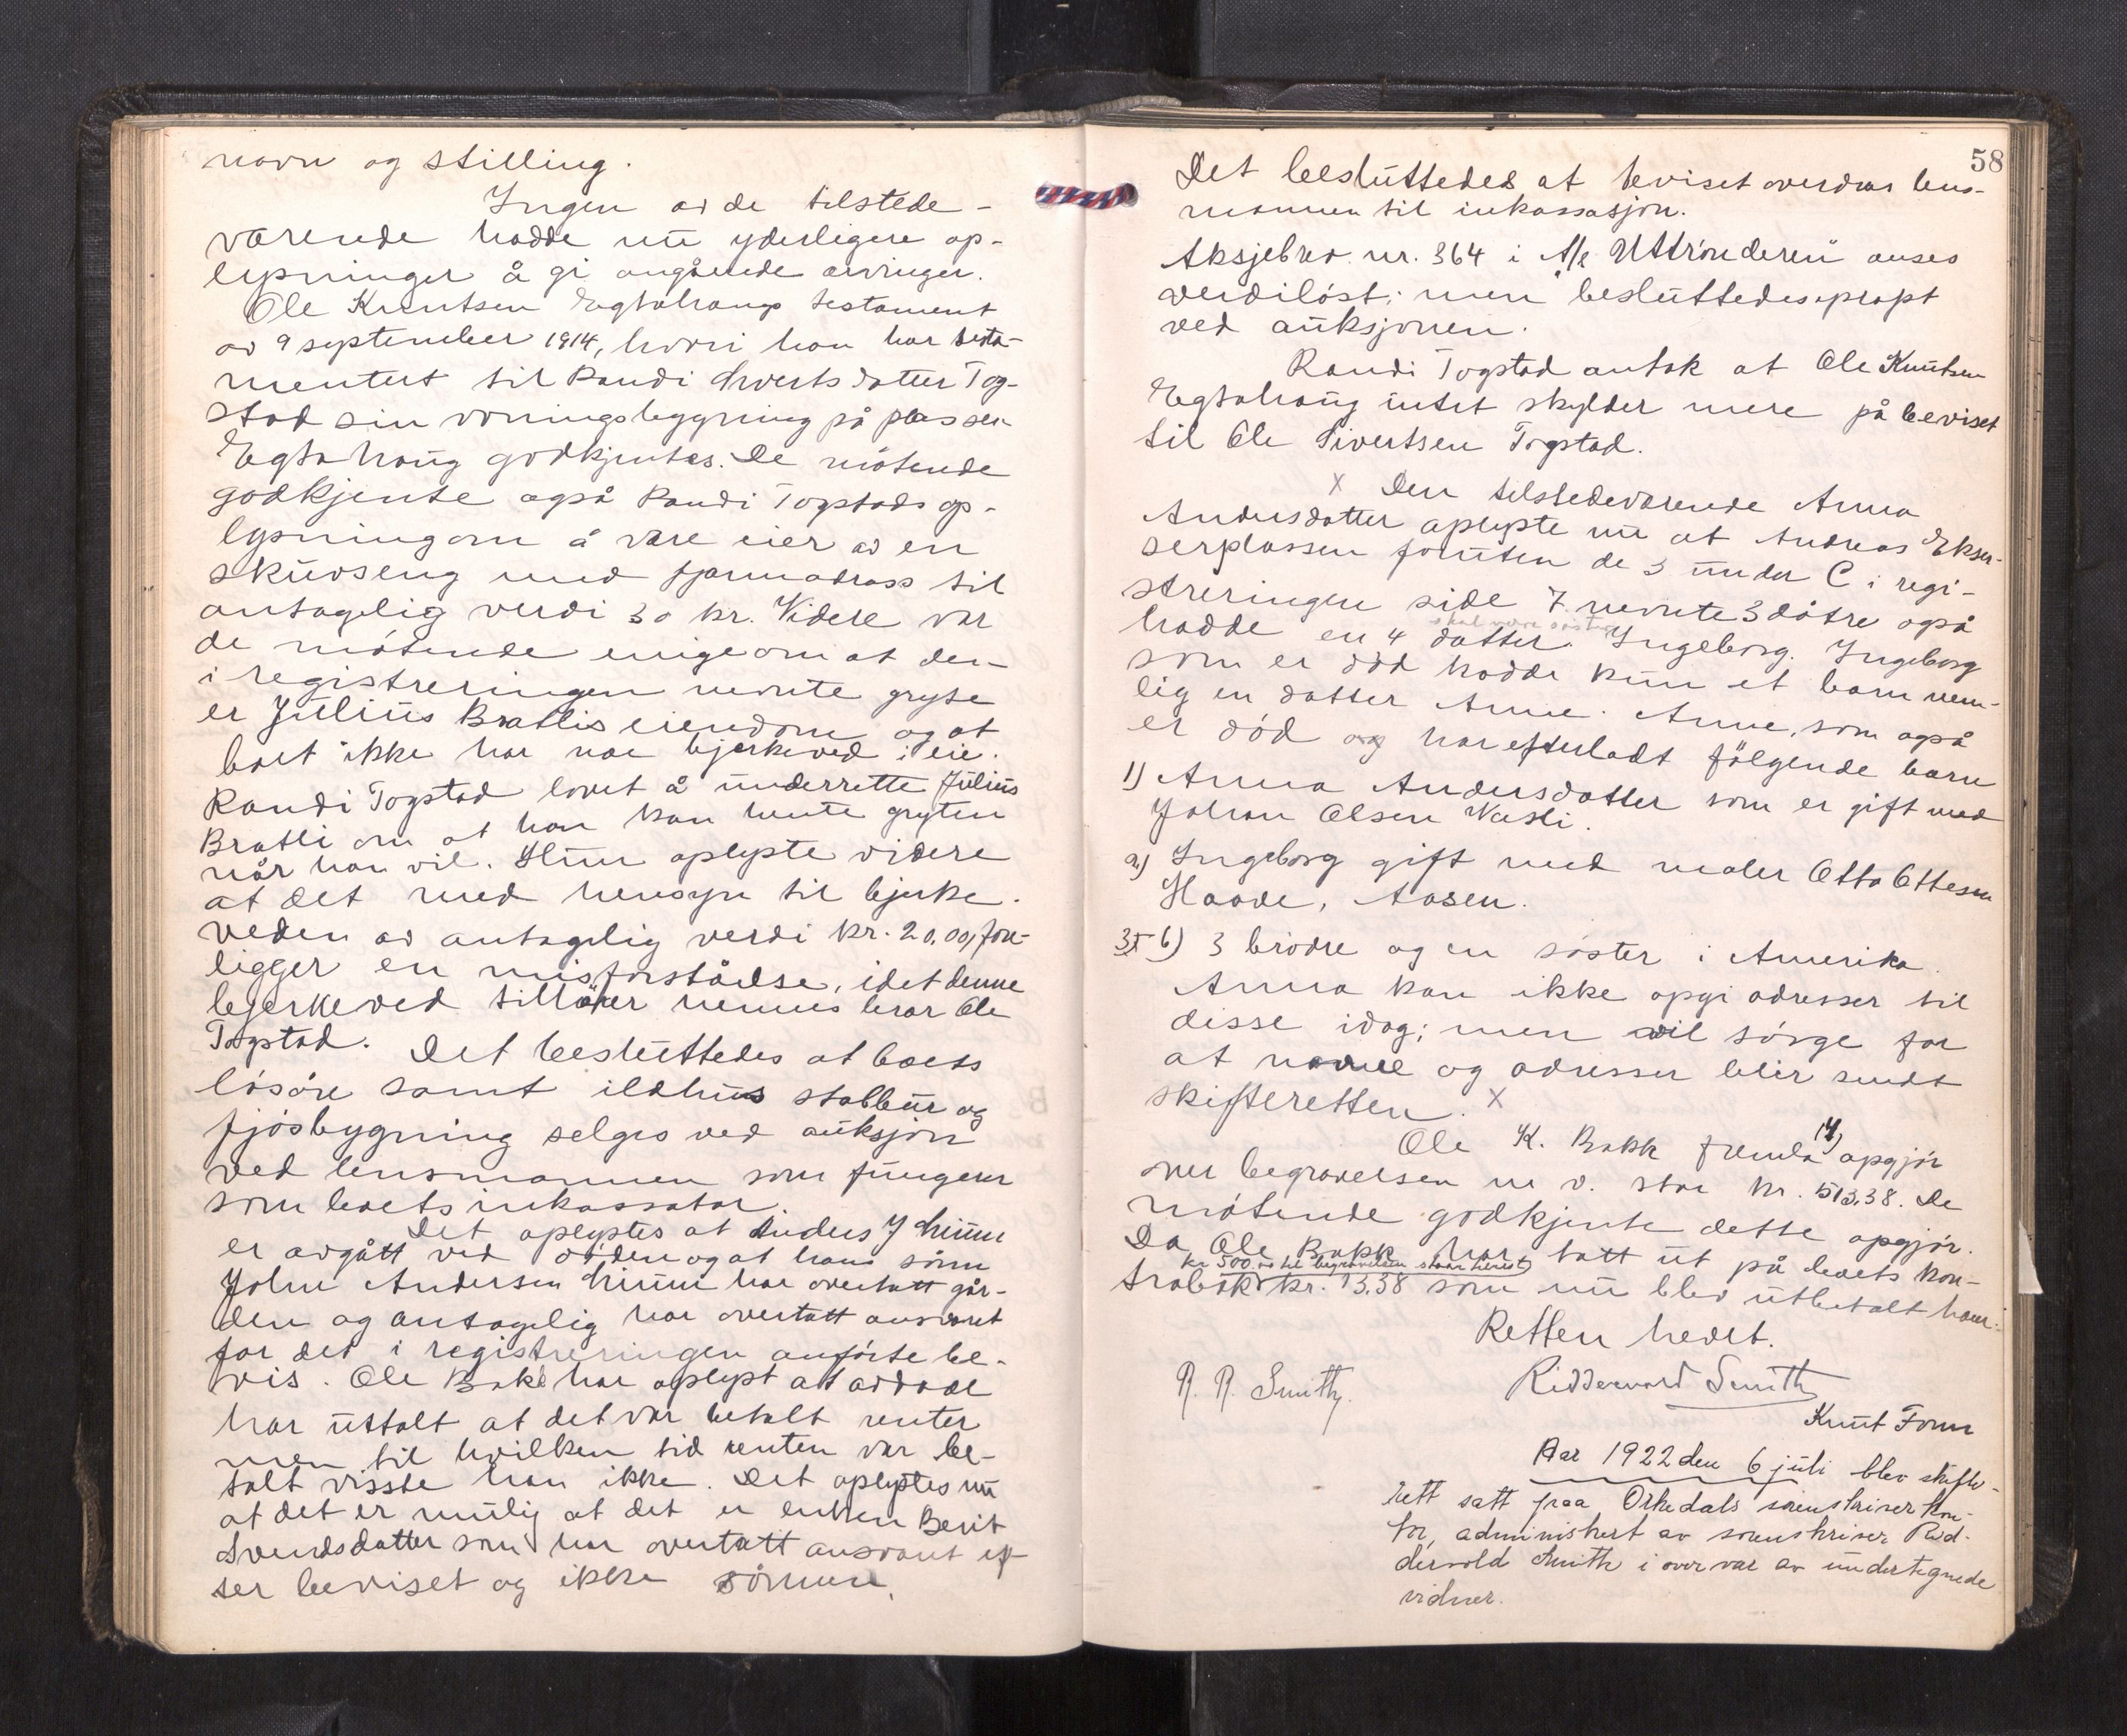 navn og stilling.
Ingen av de tilstede-
værende hadde nu yderligere op-
lysninger å gi angående arvinger.
Ole Knutsen Egtahaugs testament
av 9 september 1914, hvori han har testa-
mentert til Randi Sivertsdatter Tog-
stad sin våningsbygning på plassen
Egtahaug godkjentes. De møtende
godkjente også Randi Togstads op-
lysning om å være eier av en
skuvseng med fjærmadrass til
antagelig verdi 30 kr. Videre var
de møtende enige om at den
i registreringen nevnte gryte
er Julius Bratlis eiendom og at
boet ikke har noe bjerkeved i eie.
Randi Togstad lovet å underrette Julius
Bratli om at han kan hente gryten
når han vil. Hun oplyste videre
at det med hensyn til bjerke-
veden av antagelig verdi kr. 20,00, fore-
ligger en misforståelse, idet denne
bjerkeved tilhører hennes bror Ole
Togstad. Det besluttedes at boets
løsøre samt ildhus stabbur og
fjøsbygning selges ved auksjon
ved lensmannen som fungerer
som boets inkassator.
Det oplystes at Anders J
er avgått ved døden og at hans sønn
John Andersen har overtatt går-
den og antagelig har overtatt ansvaret
for det i registreringen anførte be-
vis. Ole Bakk har oplyst at avdøde
har uttalt at det var betalt renter
men til hvilken tid renten var be-
talt visste han ikke. Det oplystes nu
at det er mulig at det er enken Berit
Svendsdatter som har overtatt ansvaret ef-
ter beviset og ikke sønnen.
58
Det besluttedes at beviset overdras lens-
mannen til inkassasjon.
Aksjebrev nr. 364 i A/s "Uttrønderen" anses
verdiløst; men besluttedes opropt
ved auksjonen.
Randi Togstad antok at Ole Knutsen
Egtahaug intet skylder mere på beviset
til Ole Sivertsen Togstad.
x Den tilstedeværende Anna
Andersdatter oplyste nu at Andreas Ekser-
serplassen foruten de 3 under C i regi-
streringen side 7 nevnte 3 døtre også
skal være søster
hadde en 4 datter Ingeborg. Ingeborg
som er død hadde kun et barn nem-
lig en datter Anne. Anne, som også
er død og har efterladt følgende barn
1) Anna Andersdatter som er gift med
Johan Olsen Vasli.
2) Ingeborg gift med maler Otto Ottesen
Haave, Aasen.
3) 6) 3 brødre og en søster i Amerika.
Anna kan ikke opgi adresser til
disse idag; men vil sørge for
at navne og adresser blir sendt
skifteretten. x
Ole K. Bakk fremla opgjør
over begravelsen m v. stor kr. 513.38. De
møtende godkjente dette opgjør.
Da Ole Bakk har tatt ut på boets kon-
kr 500.00 til begravelsen
trabok kr. 13,38 som nu blev utbetalt ham.
Retten hevet.
R. R. Smith. Riddervord Smith
Knut Forn
Aar 1922 den 6 juli blev skifte-
rett satt paa Orkedals sorenskriverkon-
tor, administrert av sorenskriver Rid-
dervold Smith i overvær av undertegnede
vidner.